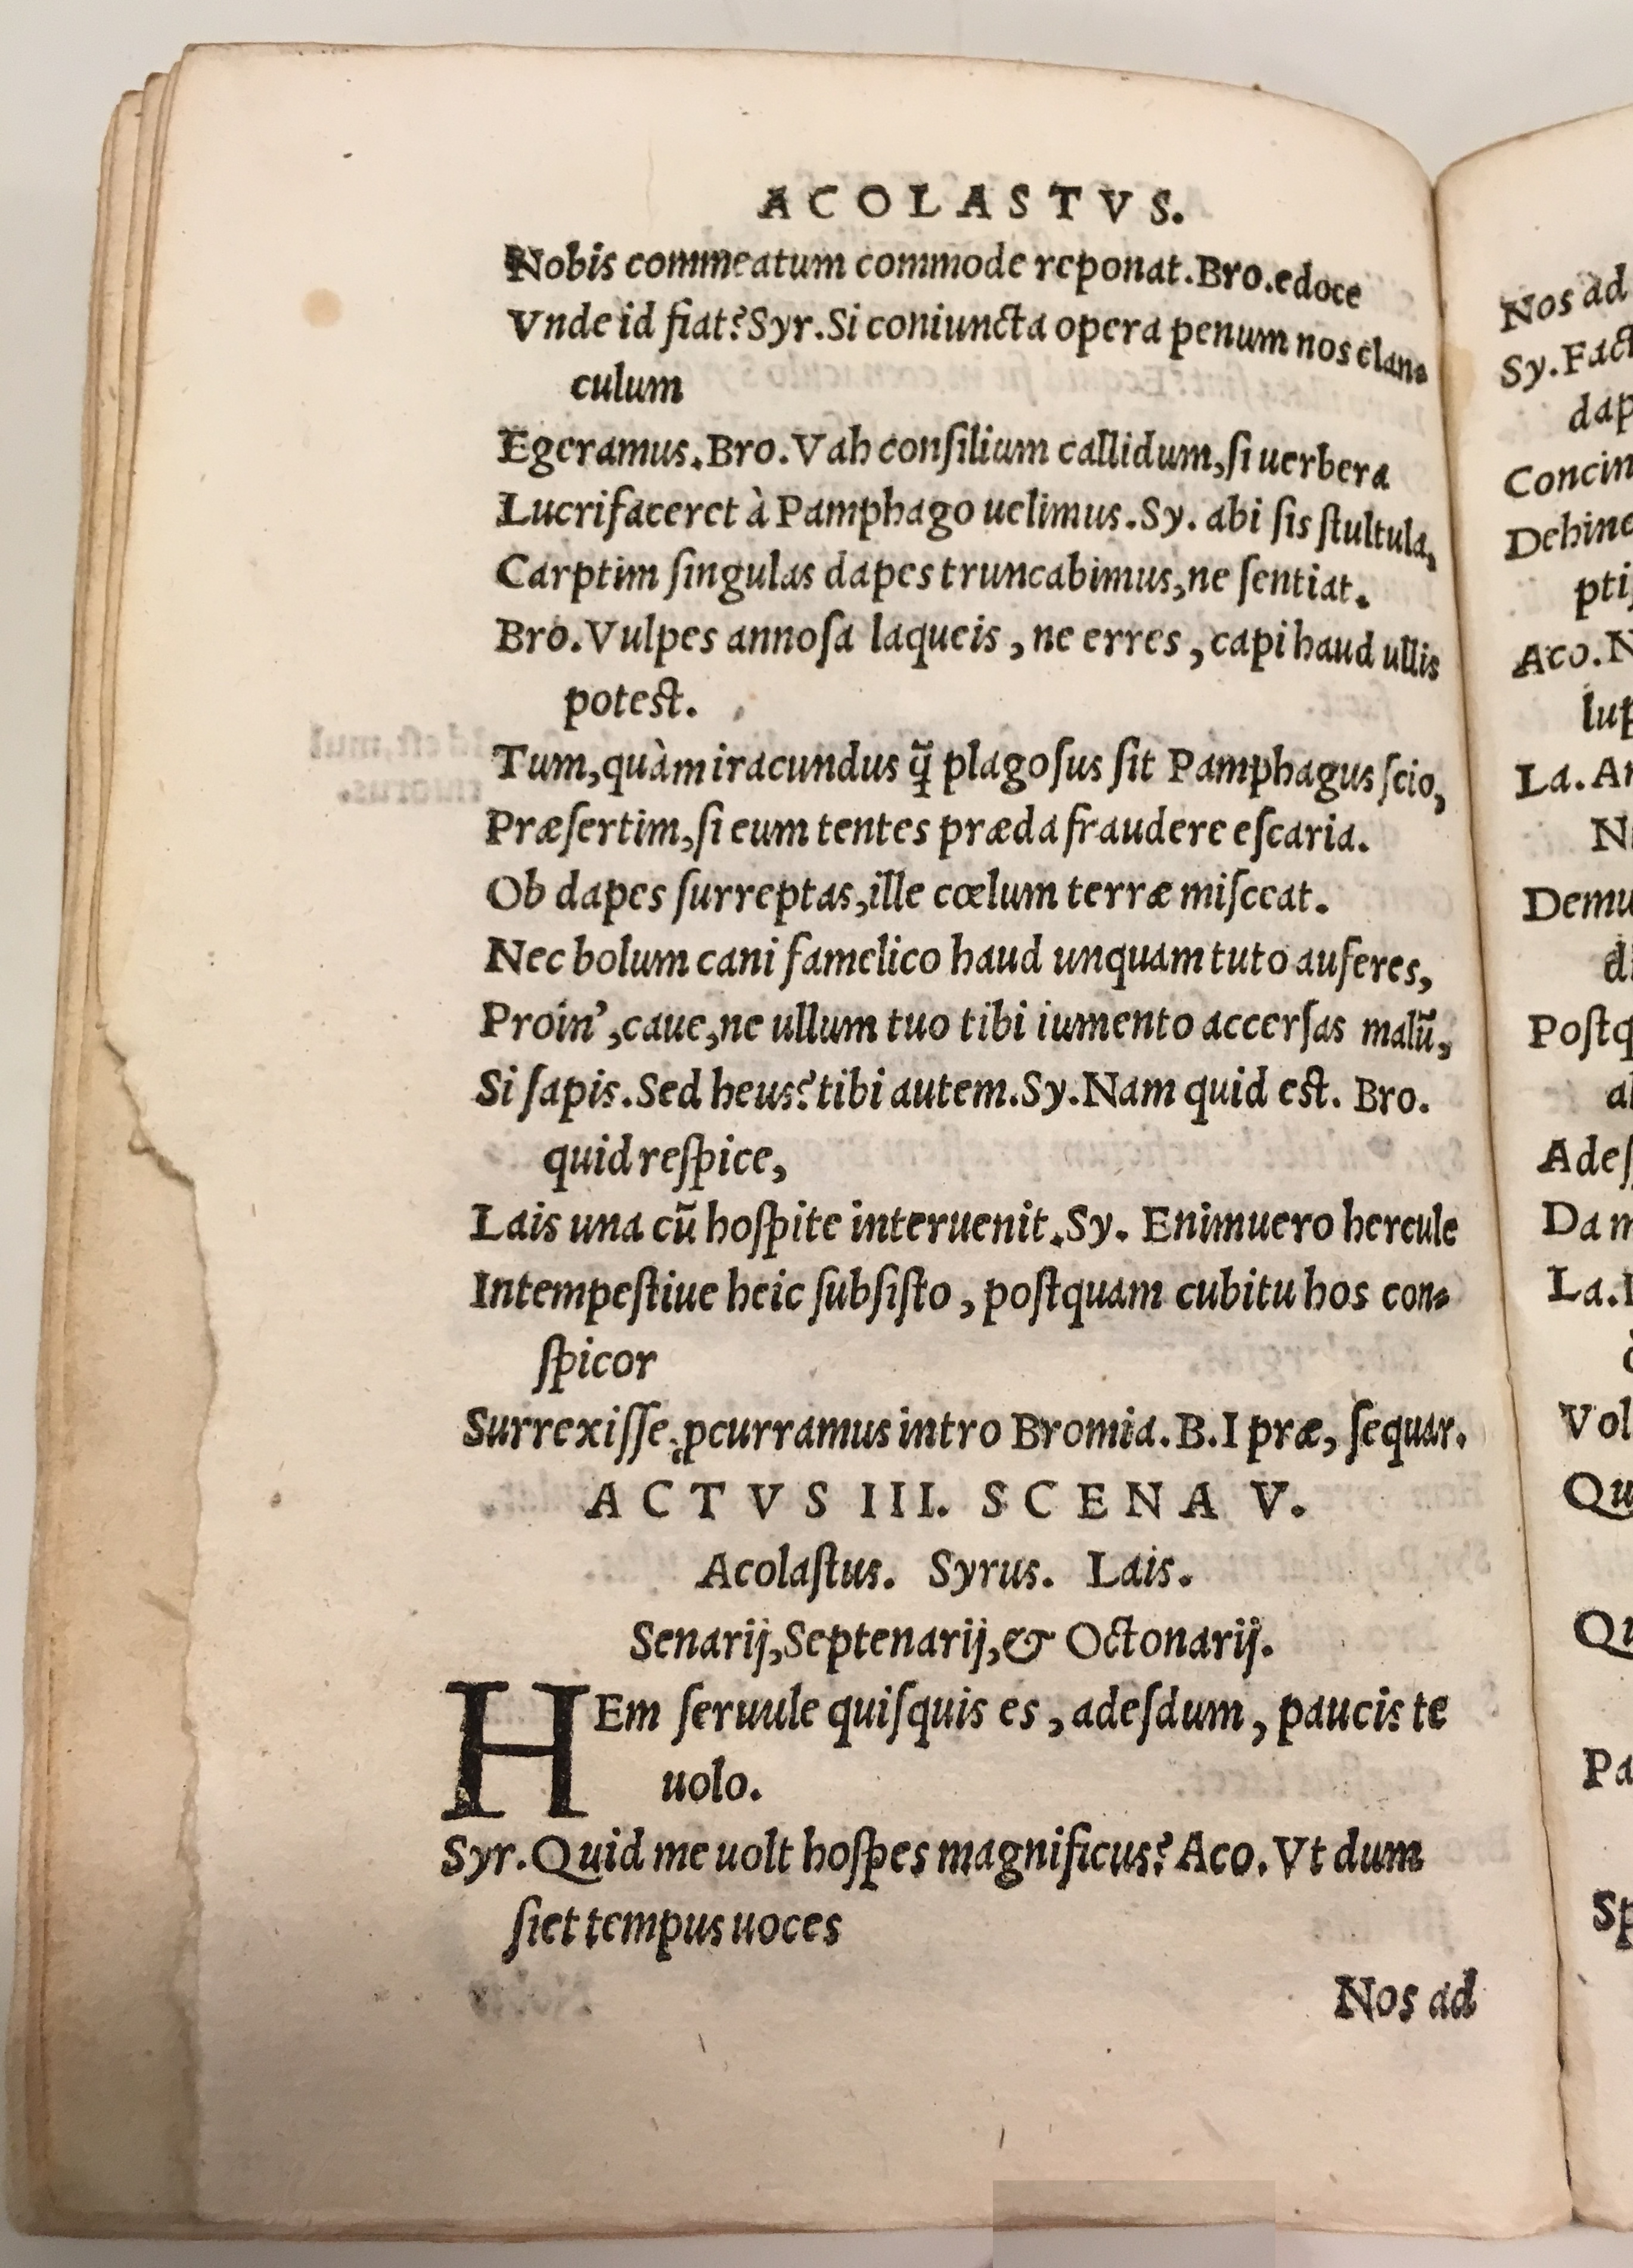 ACOLASTVS.
Nobis commeatum commode reponat. Bro. edoce
Vnde id fiat? Syr. Si coniuncta opera penum nos clan-
culum
Egeramus. Bro. Vah conſilium callidum, ſi uerbera
Lucrifaceret à Pamphago uelimus. Sy. abi ſis ſtultula,
Carptim ſingulas dapes truncabimus, ne ſentiat.
Bro. Vulpes annoſa laqueis, ne erres, capi haud ullis
poteſt.
Tum, quàm iracundus q̃ plagoſus ſit Pamphagus ſcio,
Præſertim, ſi eum tentes præda fraudere eſcaria.
Ob dapes ſurreptas, ille cœlum terræ miſceat.
Nec bolum cani famelico haud unquam tuto auferes,
Proin', caue, ne ullum tuo tibi iumento accerſas malũ,
Si ſapis. Sed heus? tibi autem. Sy. Nam quid eſt. Bro.
quid reſpice,
Lais una cũ hoſpite interuenit. Sy. Enimuero hercule
Intempeſtiue heic ſubſiſto, poſtquam cubitu hos con-
ſpicor
Surrexiſſe, ꝓcurramus intro Bromia. B. I præ, ſequar.
ACTVS III. SCENA V.
Acolaſtus. Syrus. Lais.
Senarij, Septenarij, & Octonarij.
HEm ſeruule quiſquis es, adeſdum, paucis te
uolo.
Syr. Quid me uolt hoſpes magnificus? Aco. Vt dum
ſiet tempus uoces
Nos ad
Nos ad
Sy. Fact
dap
Concin
Dehinc
ptiſ
Aco. N
lup
La. An
Demu
Poſtq
Adeſ
Da m
La.
Vol
Qu
Qu
Pa
Sp